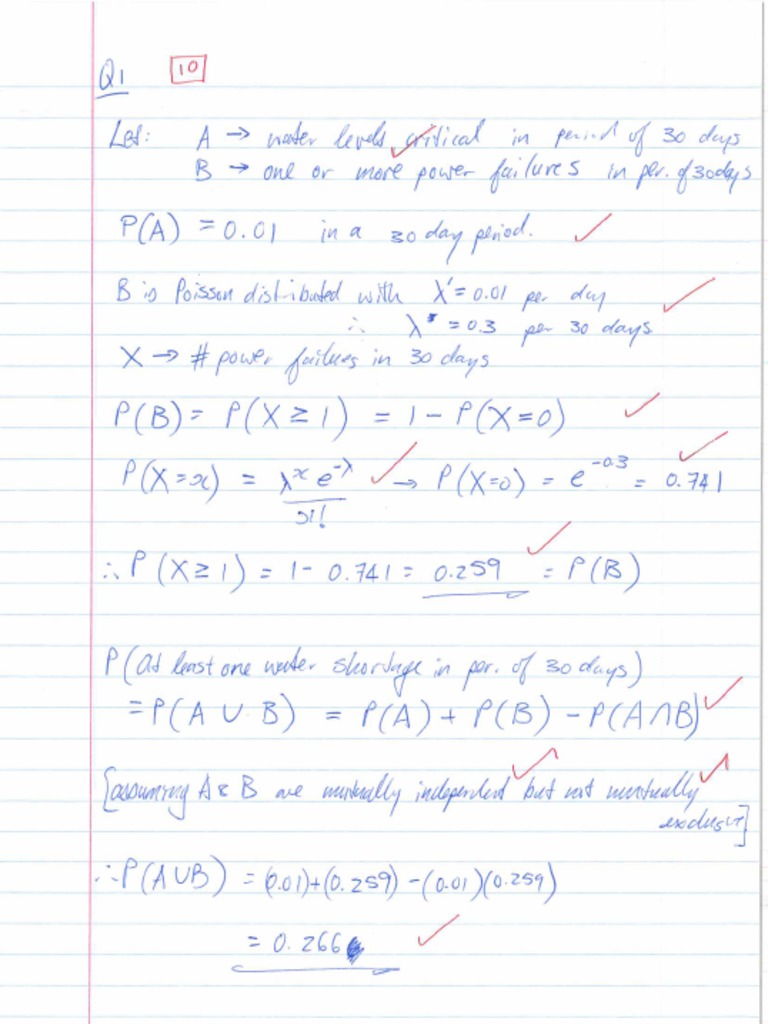 Q1 10
Let: A → water levels critical in period of 30 days
B → one or more power failures in per. of 30 days
P(A) = 0.01 in a 30 day period.
B is Poisson distributed with λ' = 0.01 per day
∴ λ = 0.3 per 30 days
X → # power failures in 30 days
P(B) = P(X ≥ 1) = 1 - P(X=0)
P(X=x) = λ^x e^-λ / x! → P(X=0) = e^-0.3 = 0.741
∴ P(X ≥ 1) = 1 - 0.741 = 0.259 = P(B)
P(at least one water shortage in per. of 30 days)
= P(A ∪ B) = P(A) + P(B) - P(A ∩ B)
[assuming A & B are mutually independent but not mutually
exclusive]
∴ P(A ∪ B) = (0.01) + (0.259) - (0.01)(0.259)
= 0.266